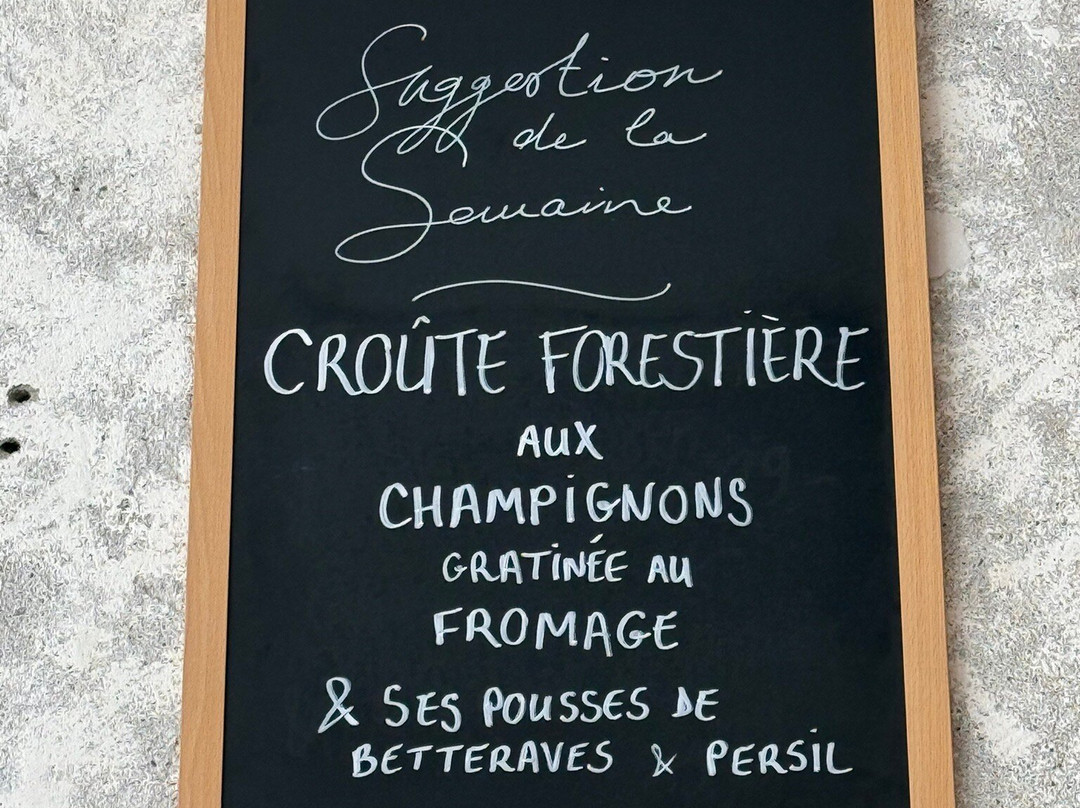 Suggestion
de la
Semaine
CROÛTE FORESTIÈRE
AUX
CHAMPiGNONS
GRATiNÉE AU
FROMAGE
& SES POUSSES DE
BETTERAVES & PERSiL